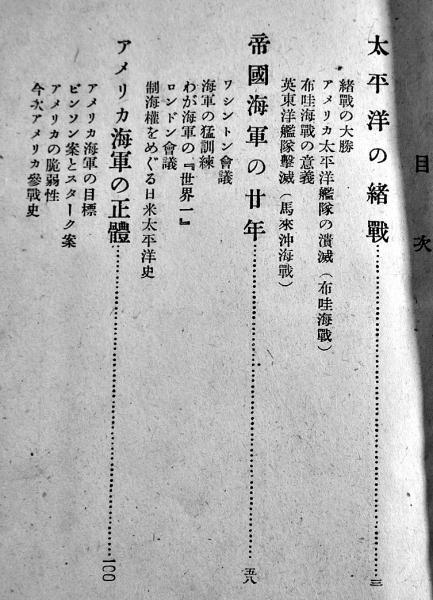 目次
太平洋の緒戰……三
緒戰の大勝
アメリカ太平洋艦隊の潰滅(布哇海戰)
布哇海戰の意義
英東洋艦隊擊滅(馬來沖海戰)
帝國海軍の廿年……五八
ワシントン會議
海軍の猛訓練
わが海軍の『世界一』
ロンドン會議
制海權をめぐる日米太平洋史
アメリカ海軍の正體……一〇〇
アメリカ海軍の目標
ビンソン案とスターク案
アメリカの脆弱性
今次アメリカ參戰史